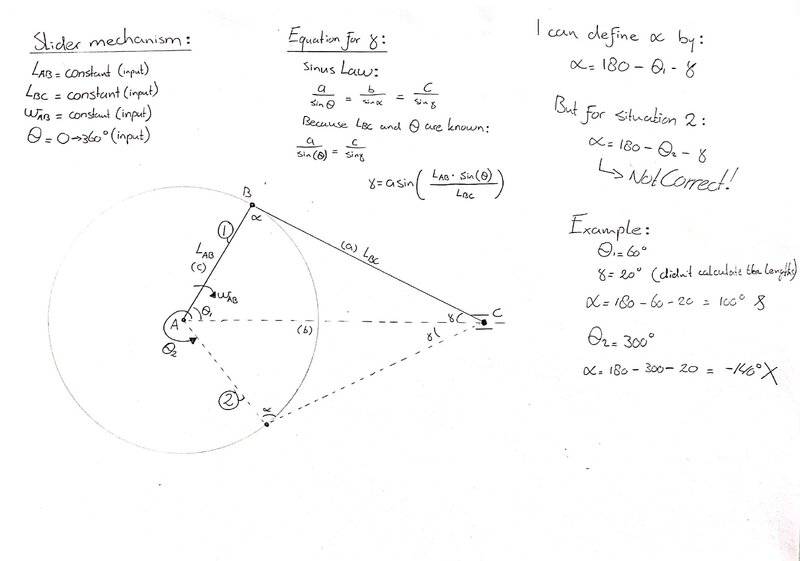 Slider mechanism:
LAB = constant (input)
LBC = constant (input)
ωAB = constant (input)
θ = 0→360° (input)
Equation for γ:
Sinus Law:
a/sinθ = b/sinα = c/sinγ
Because LBC and θ are known:
a/sin(θ) = c/sinγ
γ = asin( LAB · sin(θ) / LBC )
I can define α by:
α = 180 - θ1 - γ
But for situation 2:
α = 180 - θ2 - γ
↳ Not Correct!
Example:
θ1 = 60°
γ = 20° (didn't calculate the lengths)
α = 180 - 60 - 20 = 100°
θ2 = 300°
α = 180 - 300 - 20 = -140° X
B
α
1
LAB
(c)
(a) LBC
ωAB
A
θ1
(b)
γ
C
γ
θ2
2
α